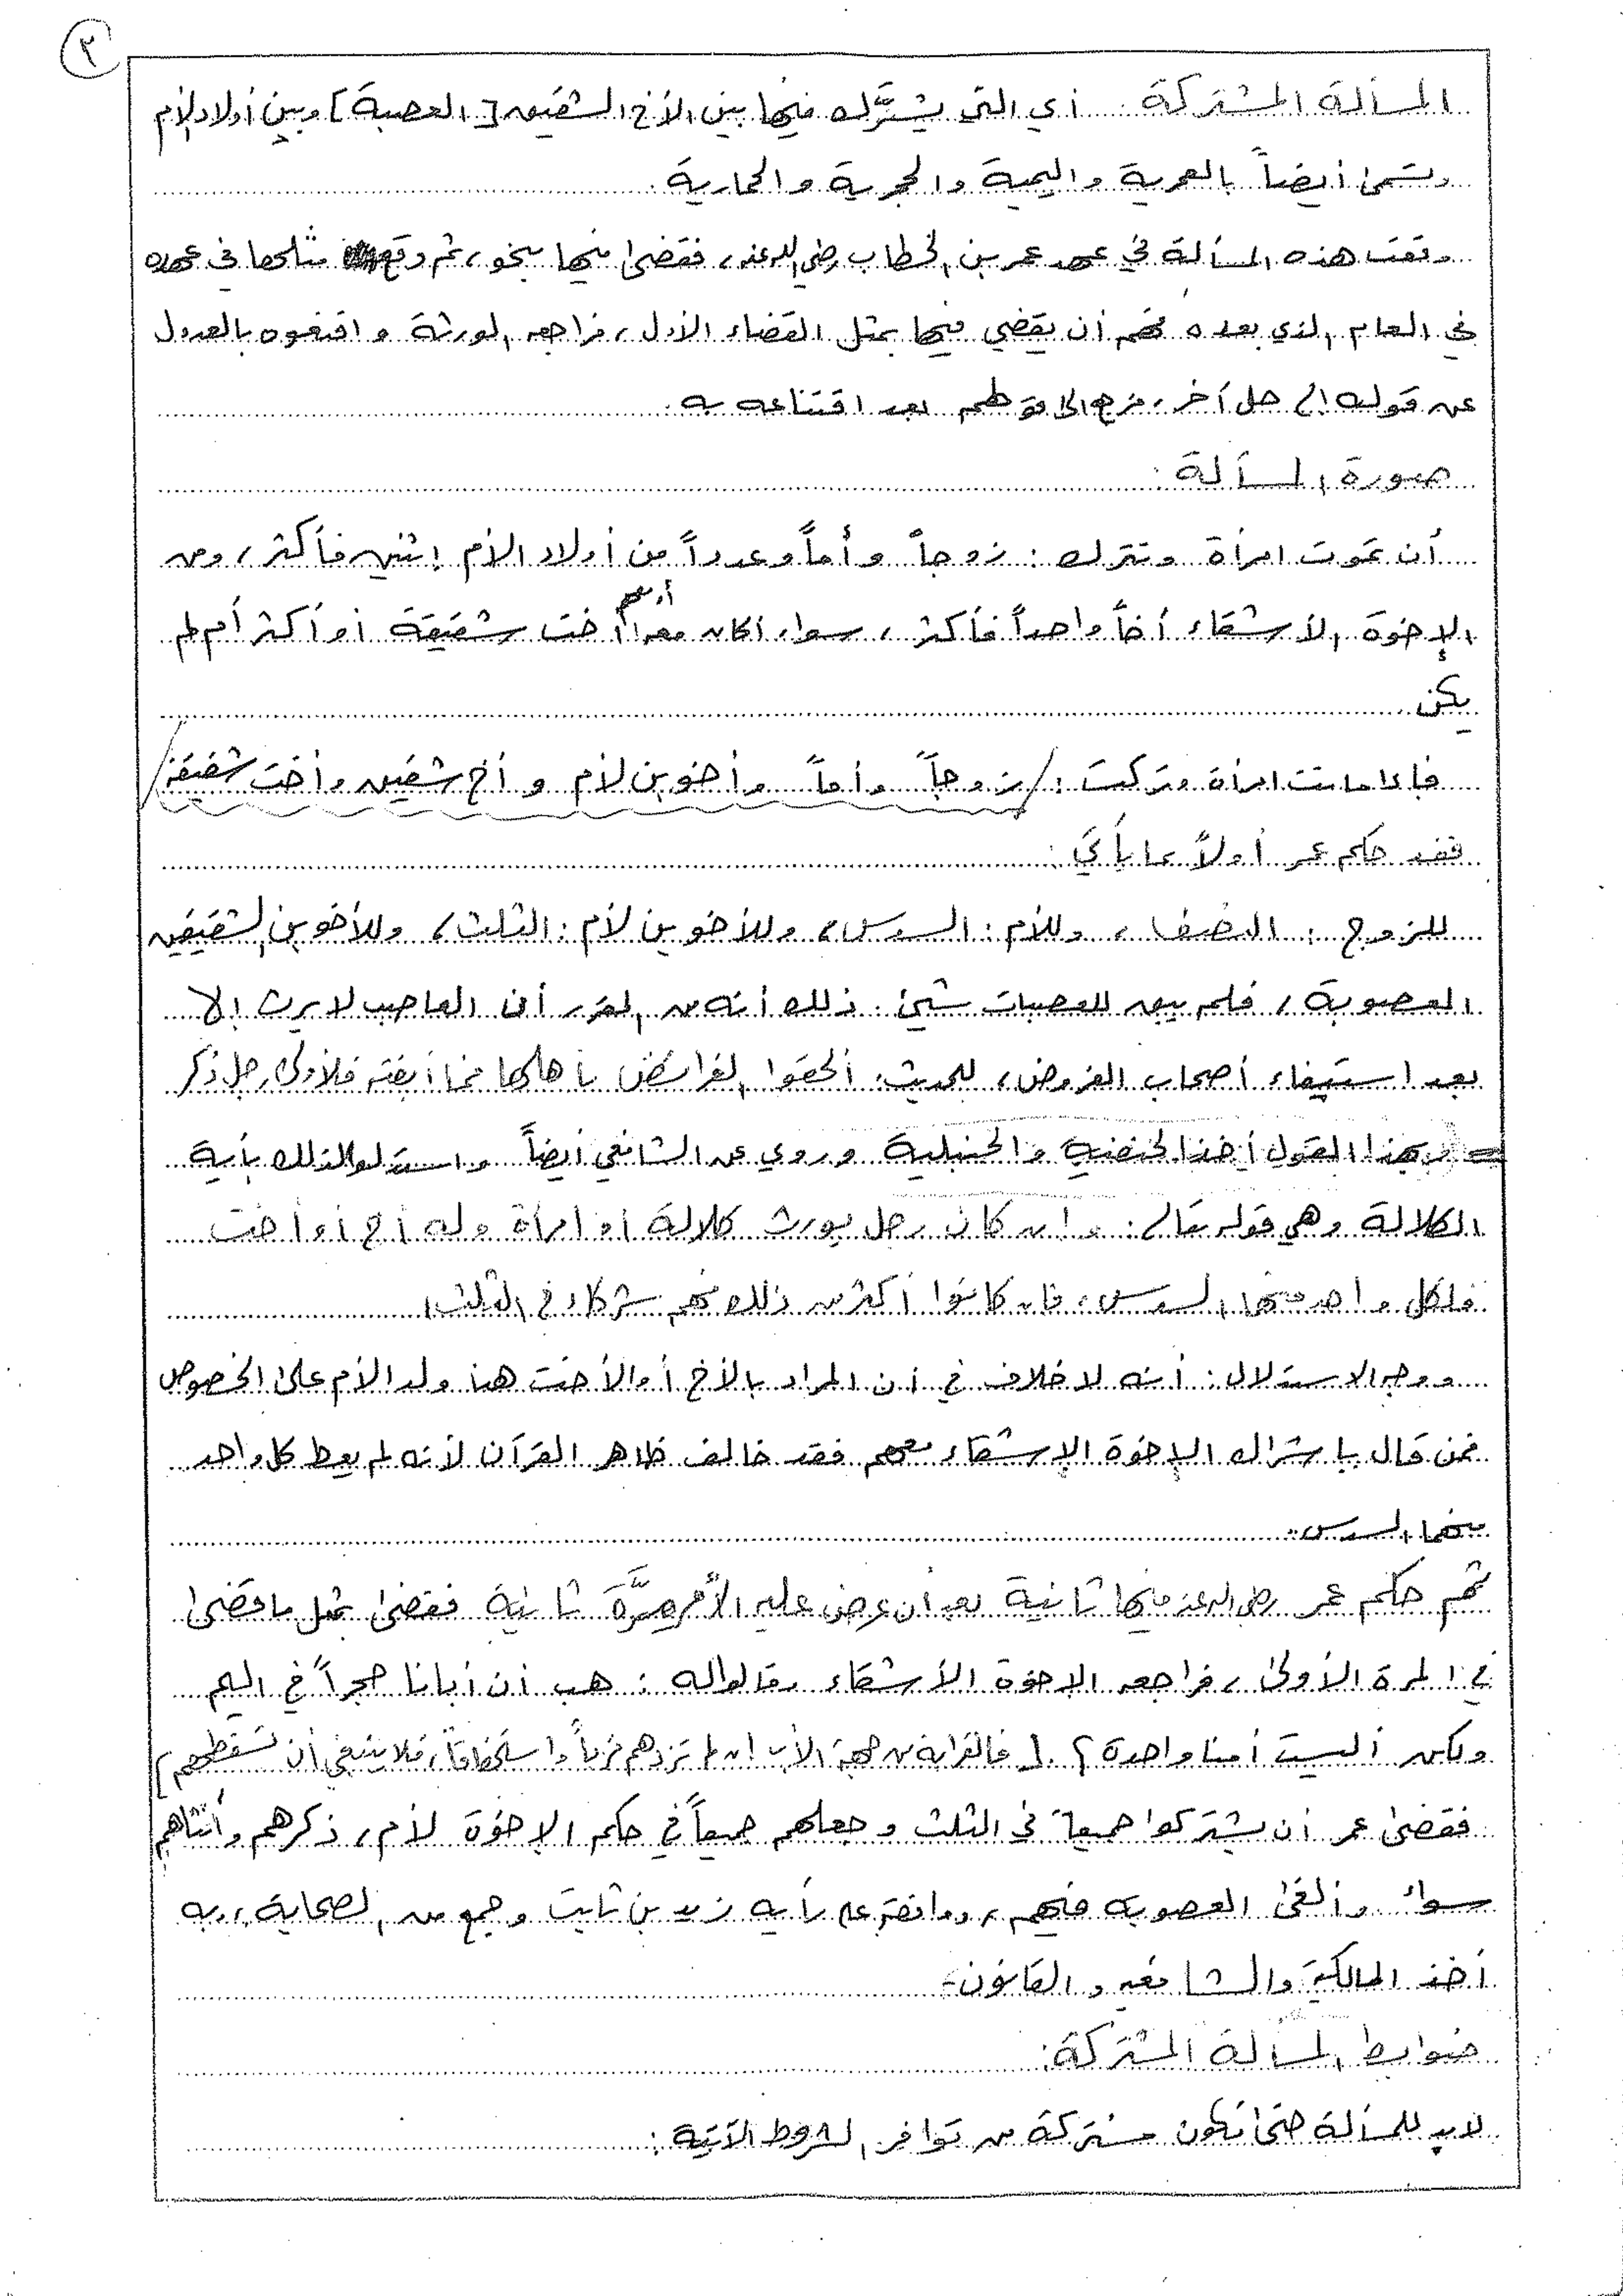 ٢
المسألة المشتركة: أي التي يشرَّك فيها بين الأخ الشقيق [العصبة] وبين أولاد الأم
وتسمى أيضاً بالعمرية واليمية والحجرية والحمارية.
وقعت هذه المسألة في عهد عمر بن الخطاب رضي الله عنه، فقضى فيها بنحو، ثم وقع مثلها في عهده
في العام الذي بعده فهم أن يقضي فيها بمثل القضاء الأول، فراجعه الورثة واقنعوه بالعدول
عن قوله إلى حل آخر، فرجع إلى قولهم بعد اقتناعه به.
صورة المسألة:
أن تموت امرأة وتترك: زوجاً وأماً وعدداً من أولاد الأم إثنين فأكثر، ومن
الإخوة الأشقاء أخاً واحداً فأكثر، سواء أكان معه أو معهم أخت شقيقة أو أكثر أم لم
يكن.
فإذا ماتت امرأة وتركت: / زوجاً وأماً وأخوين لأم وأخ شقيق وأخت شقيقة /
فقد حكم عمر أولاً بما يأتي:
للزوج: النصف، وللأم: السدس، وللأخوين لأم: الثلث، وللأخوين الشقيقين
العصوبة، فلم يبق للعصبات شيء. ذلك أنه من المقرر أن العاصب لا يرث إلا
بعد استيفاء أصحاب الفروض، للحديث: ألحقوا الفرائض بأهلها فما أبقته فلأولى رجل ذكر
وبهذا القول أخذ الحنفية والحنبلية وروي عن الشافعي أيضاً واستدلوا لذلك بآية
الكلالة وهي قوله تعالى: وإن كان رجل يورث كلالة أو امرأة وله أخ أو أخت
فلكل واحد منهما السدس، فإن كانوا أكثر من ذلك فهم شركاء في الثلث
ووجه الاستدلال: أنه لا خلاف في أن المراد بالأخ أو الأخت هنا ولد الأم على الخصوص
فمن قال بإشراك الإخوة الأشقاء معهم فقد خالف ظاهر القرآن لأنه لم يعط كل واحد
منهما السدس.
ثم حكم عمر رضي الله عنه فيها ثانية بعد أن عرض عليه الأمر مرَّة ثانية فقضى بمثل ما قضى
في المرة الأولى، فراجعه الإخوة الأشقاء وقالوا له: هب أن أبانا حجراً في اليم
ولكن أليست أمنا واحدة؟. [فالقرابة من جهة الأب إن لم تزدهم قرباً واستحقاقاً، فلا ينبغي أن تسقطهم]
فقضى عمر أن يشتركوا جميعاً في الثلث وجعلهم جميعاً في حكم الإخوة لأم، ذكرهم وأنثاهم
سواء وألغى العصوبة فيهم، ووافقه على رأيه زيد بن ثابت وجمع من الصحابة، وبه
أخذ المالكية والشافعية والقانون.
ضوابط المسألة المشتركة:
لابد للمسألة حتى تكون مشتركة من توافر الشروط الآتية: